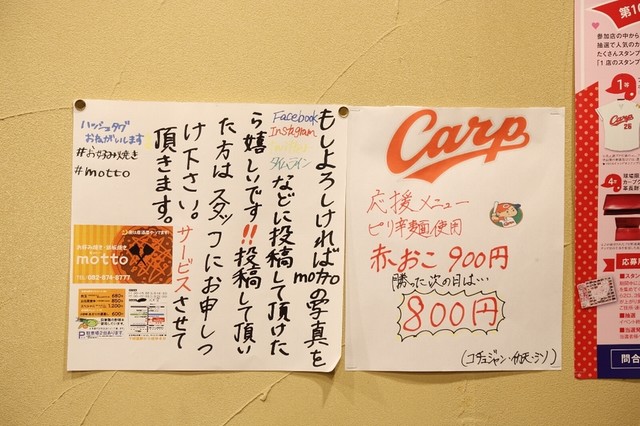 もしよろしければmottoの写真を
Facebook
Instagram
Twitter
タイムライン
などに投稿して頂けた
ら嬉しいです!!投稿して頂い
た方はスタッフにお申しつ
け下さい。サービスさせて
頂きます。
ハッシュタグ
おねがいします
#お好み焼き
#motto
お好み焼き・鉄板焼き
motto
Carp
応援メニュー
ピリ辛麺使用
赤おこ 900円
勝った次の日は…
800円
(コチュジャン・イカ天・ニラ)
参加店の中から
抽選で人気のカ
たくさんスタンプ
「1店のスタンプ
1等
4等
応募
問合